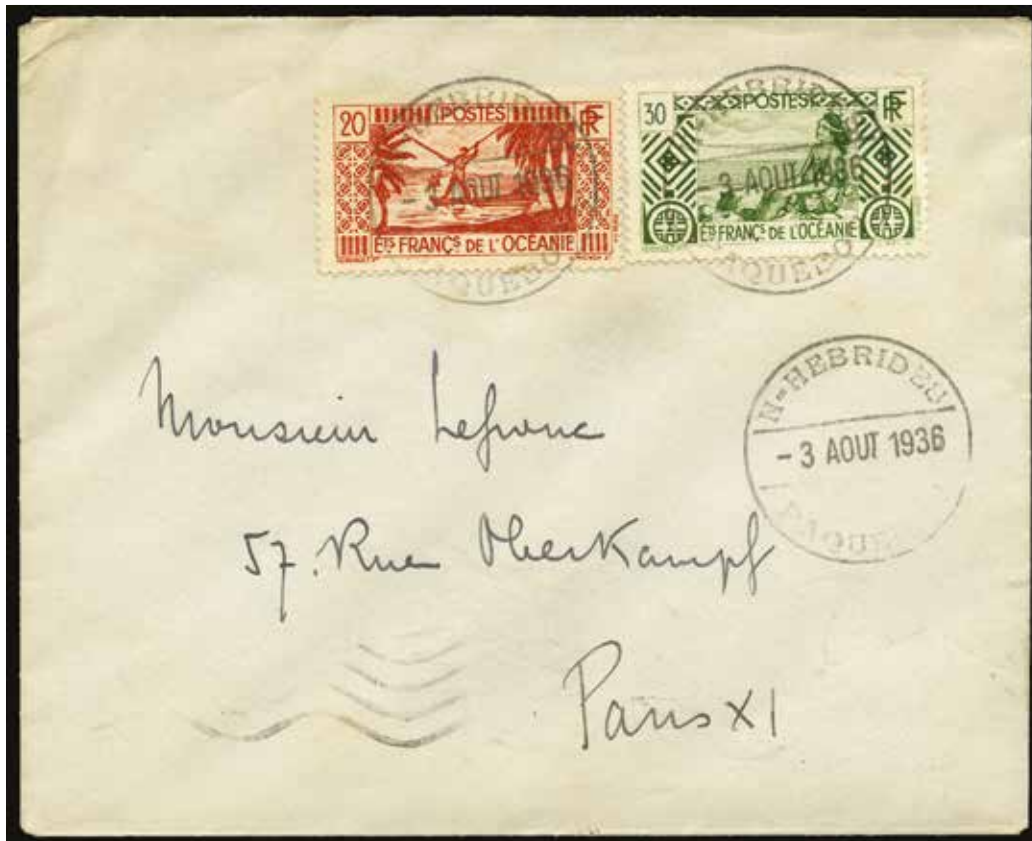 20 POSTES RF
- 3 AOUT 1936
ÉTS FRANÇS DE L'OCÉANIE
30 POSTES RF
- 3 AOUT 1936
ÉTS FRANÇS DE L'OCÉANIE
N-HEBRIDES
- 3 AOUT 1936
Monsieur Lefranc
57. Rue Oberkampf
Paris XI